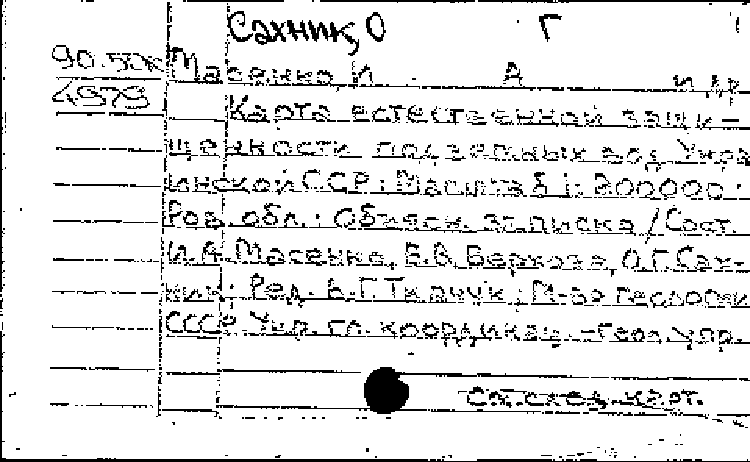 Сахник, О Г
90.50к Масенко И А и др
4979 Карта естественной защи-
щенности подземных вод Укра
инской ССР: Масштаб 1:200000:
Ров. обл.: Объясн. записка / Сост.
И.А. Масенко, Е.В. Верхова, О.Г. Сах-
ник; Ред. В.Г. Ткачук; М-во геологии
СССР. Укр. гл. координац.-геол. упр.
См. след. карт.